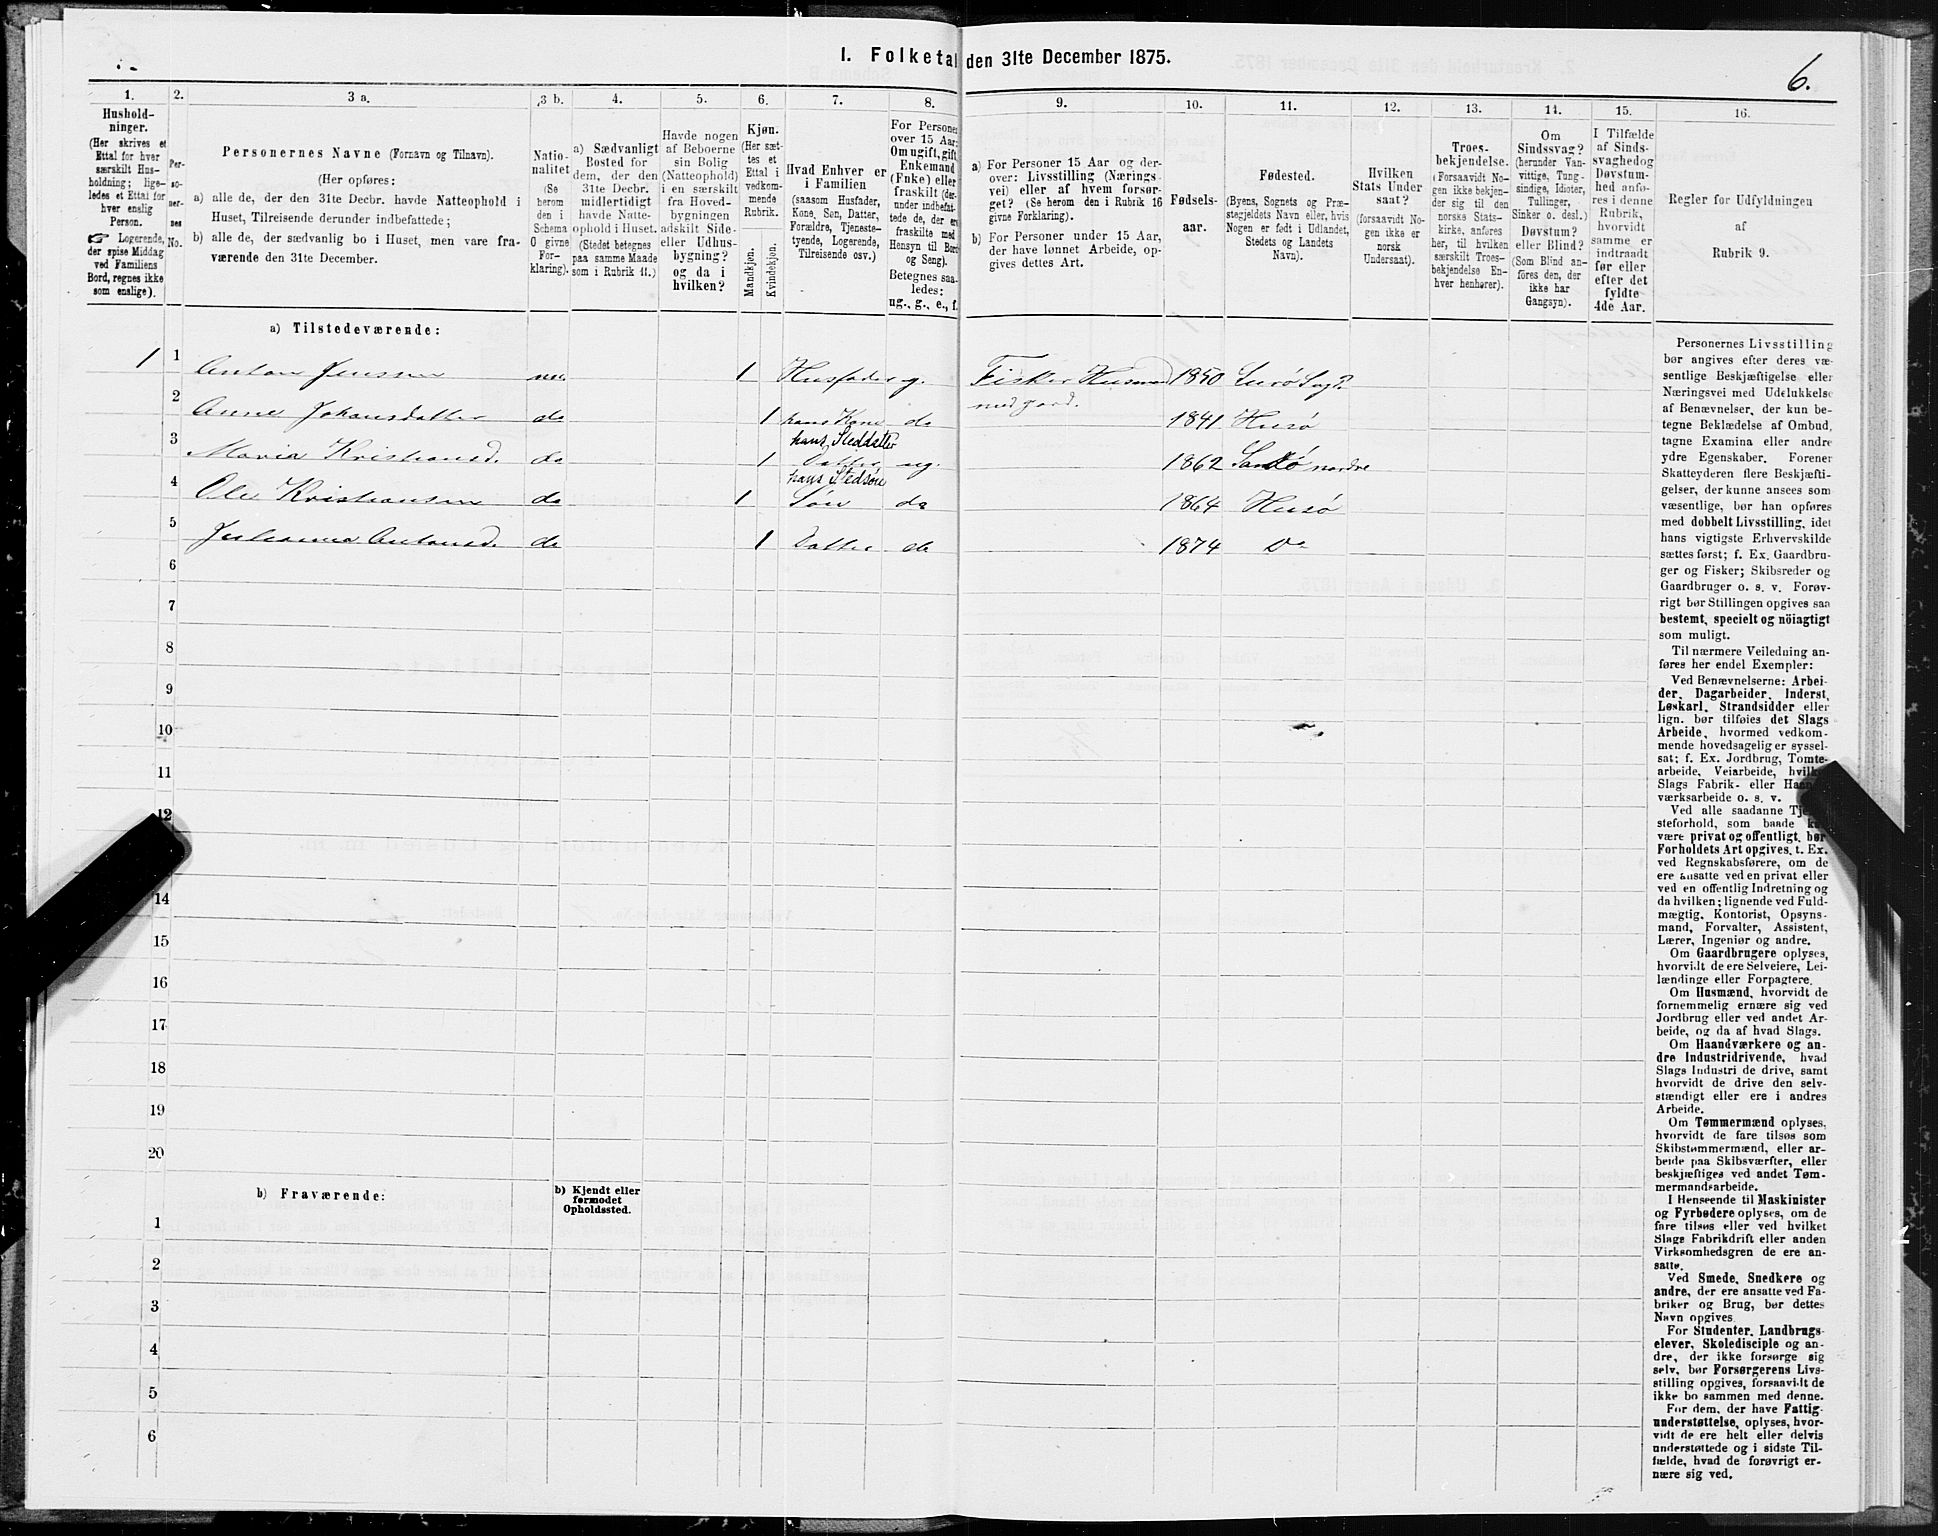 I. Folketal den 31te December 1875.
6.
1.
Hushold-
ninger.
(Her skrives et
Ettal for hver
særskilt Hus-
holdning; lige-
ledes et Ettal for
hver enslig
Person.
☞ Logerende,
der spise Middag
ved Familiens
Bord, regnes ikke
som enslige).
2.
Per-
so-
ner-
nes
No.
3 a.
Personernes Navne (Fornavn og Tilnavn).
(Her opføres:
a) alle de, der den 31te Decbr. havde Natteophold i
Huset, Tilreisende derunder indbefattede;
b) alle de, der sædvanlig bo i Huset, men vare fra-
værende den 31te December.
3 b.
Natio-
nalitet
(Se
herom
den i
Schema
O givne
For-
klaring).
4.
a) Sædvanligt
Bosted for
dem, der den
31te Decbr.
midlertidigt
havde Natte-
ophold i Huset.
(Stedet betegnes
paa samme Maade
som i Rubrik 11.)
5.
Havde nogen
af Beboerne
sin Bolig
(Natteophold)
i en særskilt
fra Hoved-
bygningen
adskilt Side-
eller Udhus-
bygning?
og da i
hvilken?
6.
Kjøn.
(Her sæt-
tes et
Ettal i
vedkom-
mende
Rubrik.
Mandkjøn.
Kvindekjøn.
7.
Hvad Enhver er
i Familien
(saasom Husfader,
Kone, Søn, Datter,
Forældre, Tjeneste-
tyende, Logerende,
Tilreisende osv.)
8.
For Personer
over 15 Aar:
Om ugift, gift,
Enkemand
(Enke) eller
fraskilt (der-
under indbefat-
tede de, der ere
fraskilte med
Hensyn til Bord
og Seng).
Betegnes saa-
ledes:
ug., g., e., f.
9.
a) For Personer 15 Aar og der-
over: Livsstilling (Nærings-
vei) eller af hvem forsør-
get? (Se herom den i Rubrik 16
givne Forklaring).
b) For Personer under 15 Aar,
der have lønnet Arbeide, op-
gives dettes Art.
10.
Fødsels-
aar.
11.
Fødested.
(Byens, Sognets og Præ-
stegjeldets Navn eller, hvis
Nogen er født i Udlandet,
Stedets og Landets
Navn).
12.
Hvilken
Stats Under
saat?
(forsaavidt No-
gen ikke er
norsk
Undersaat).
13.
Troes-
bekjendelse.
(Forsaavidt No-
gen ikke bekjen-
der sig til den
norske Stats-
kirke, anføres
her, til hvilken
særskilt Troes-
bekjendelse En-
hver henhører).
14.
Om
Sindssvag?
(herunder Van-
vittige, Tung-
sindige, Idioter,
Tullinger,
Sinker o. desl.)
Døvstum?
eller Blind?
(Som Blind an-
føres den, der
ikke har
Gangsyn).
15.
I Tilfælde
af Sinds-
svaghed og
Døvstum-
hed anfø-
res i denne
Rubrik,
hvorvidt
samme er
indtraadt
før eller
efter det
fyldte
4de Aar.
16.
Regler for Udfyldningen
af
Rubrik 9.
a) Tilstedeværende:
1 1 Anton Jenssen nn. 1 Husfader g. Fisker Husmand 1850 Lurø Sog?
med jord.
2 Anne Johansdatter do 1 hans Kone do 1841 Husø
hans Steddatter
3 Maria Kristiansd. do 1 Datter ug. 1862 Sandø nordre
hans Stedsøn
4 Ole Kristiansen do 1 Søn do 1864 Husø
5 Johanna Antonsd. do 1 Datter do 1874 Do
6
7
8
9
10
11
12
14
15
16
17
18
19
20
b) Fraværende:
b) Kjendt eller
formodet
Opholdssted.
1
2
3
4
5
6
Personernes Livsstilling
bør angives efter deres væ-
sentlige Beskjæftigelse eller
Næringsvei med Udelukkelse
af Benævnelser, der kun be-
tegne Beklædelse af Ombud,
tagne Examina eller andre
ydre Egenskaber. Forener
Skatteyderen flere Beskjæfti-
gelser, der kunne ansees som
væsentlige, bør han opføres
med dobbelt Livsstilling, idet
hans vigtigste Erhvervskilde
sættes først; f. Ex. Gaardbru-
ger og Fisker; Skibsreder og
Gaardbruger o. s. v. Forøv-
rigt bør Stillingen opgives saa
bestemt, specielt og nöiagtigt
som muligt.
Til nærmere Veiledning an-
føres her endel Exempler:
Ved Benævnelserne: Arbei-
der, Dagarbeider, Inderst,
Løskarl, Strandsidder eller
lign. bør tilføies det Slags
Arbeide, hvormed vedkom-
mende hovedsagelig er syssel-
sat; f. Ex. Jordbrug, Tomte-
arbeide, Veiarbeide, hvilket
Slags Fabrik- eller Haand-
værksarbeide o. s. v.
Ved alle saadanne Tje-
steforhold, som baade kan
være privat og offentligt, bør
Forholdets Art opgives, t. Ex.
ved Regnskabsførere, om de
ere ansatte ved en privat eller
ved en offentlig Indretning og
da hvilken; lignende ved Fuld-
mægtig, Kontorist, Opsyns-
mand, Forvalter, Assistent,
Lærer, Ingeniør og andre.
Om Gaardbrugere oplyses,
hvorvidt de ere Selveiere, Lei-
lændinge eller Forpagtere.
Om Husmænd, hvorvidt de
fornemmelig ernære sig ved
Jordbrug eller ved andet Ar-
beide, og da af hvad Slags.
Om Haandværkere og an-
dre Industridrivende, hvad
Slags Industri de drive, samt
hvorvidt de drive den selv-
stændigt eller ere i andres
Arbeide.
Om Tømmermænd oplyses,
hvorvidt de fare tilsøs som
Skibstømmermænd, eller ar-
beide paa Skibsværfter, eller
beskjæftiges ved andet Tøm-
mermandsarbeide.
I Henseende til Maskinister
og Fyrbødere oplyses, om de
fare tilsøs eller ved hvilket
Slags Fabrikdrift eller anden
Virksomhedsgren de ere an-
satte.
Ved Smede, Snedkere og
andre, der ere ansatte ved Fa-
briker og Brug, bør dettes
Navn opgives.
For Studenter, Landbrugs-
elever, Skoledisciple og an-
dre, der ikke forsørge sig
selv, bør Forsørgerens Livs-
stilling opgives, forsaavidt de
ikke bo sammen med denne.
For dem, der have Fattig-
understøttelse, oplyses, hvor-
vidt de ere helt eller delvis
understøttede og i sidste Til-
fælde, hvad de forøvrigt er-
nære sig ved.